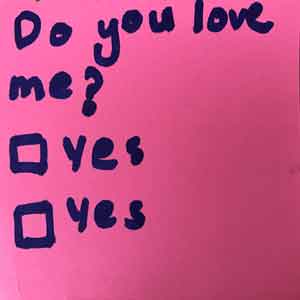 Do you love
me?
yes
yes